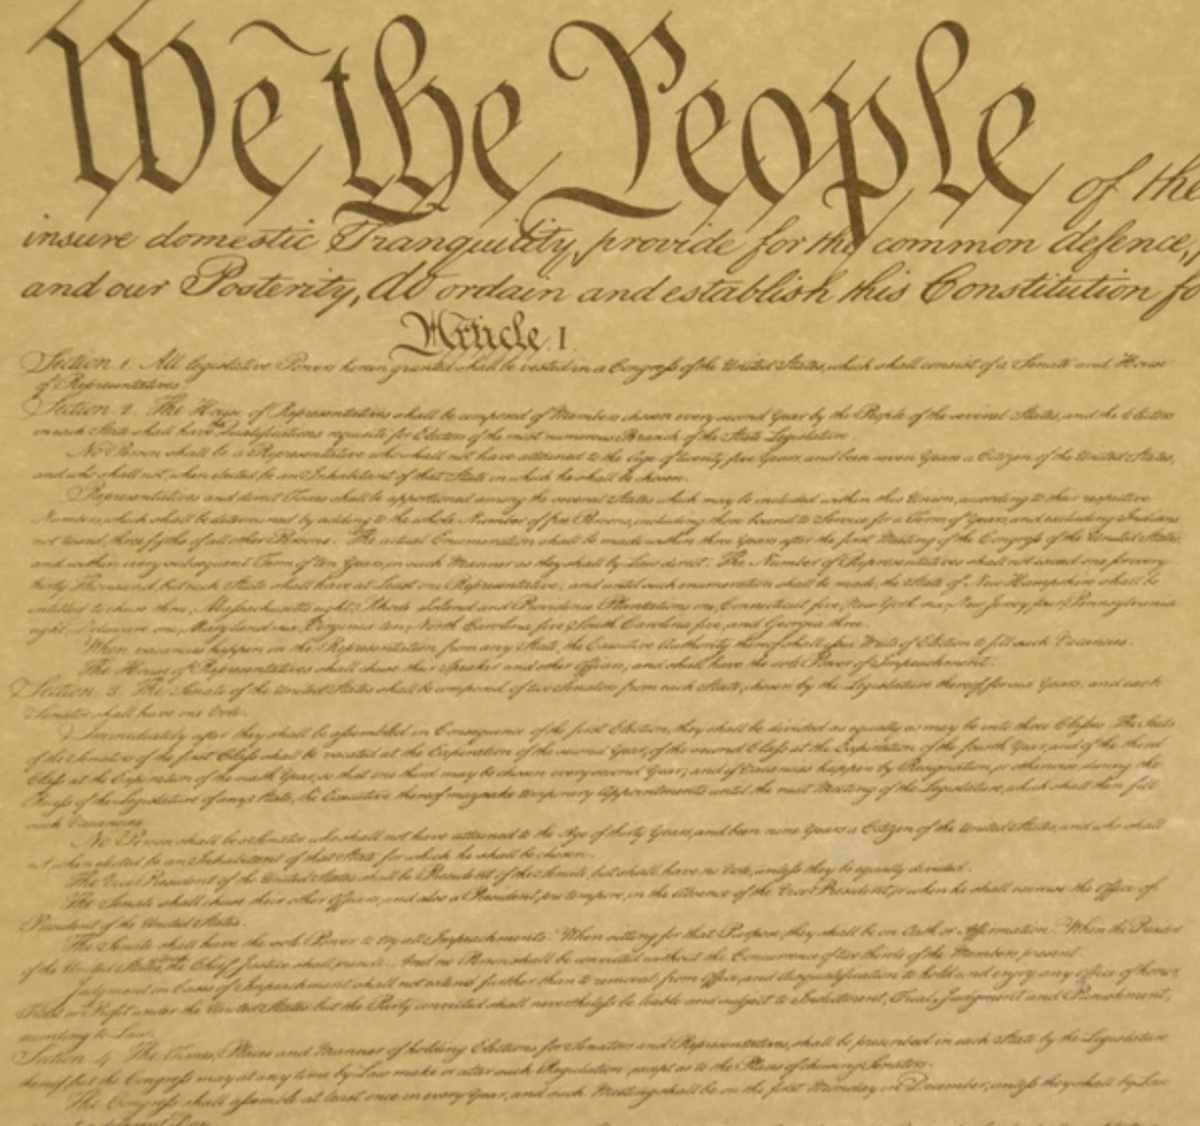 We the People of the
insure domestic Tranquility, provide for the common defence,
and our Posterity, do ordain and establish this Constitution fo
Article. I.
Section. 1. All legislative Powers herein granted shall be vested in a Congress of the United States, which shall consist of a Senate and House
of Representatives.
Section. 2. The House of Representatives shall be composed of Members chosen every second Year by the People of the several States, and the Electors
in each State shall have the Qualifications requisite for Electors of the most numerous Branch of the State Legislature.
No Person shall be a Representative who shall not have attained to the Age of twenty five Years, and been seven Years a Citizen of the United States,
and who shall not, when elected, be an Inhabitant of that State in which he shall be chosen.
Representatives and direct Taxes shall be apportioned among the several States which may be included within this Union, according to their respective
Numbers, which shall be determined by adding to the whole Number of free Persons, including those bound to Service for a Term of Years, and excluding Indians
not taxed, three fifths of all other Persons. The actual Enumeration shall be made within three Years after the first Meeting of the Congress of the United States,
and within every subsequent Term of ten Years, in such Manner as they shall by Law direct. The Number of Representatives shall not exceed one for every
thirty Thousand, but each State shall have at Least one Representative; and until such enumeration shall be made, the State of New Hampshire shall be
entitled to chuse three, Massachusetts eight, Rhode Island and Providence Plantations one, Connecticut five, New York six, New Jersey four, Pennsylvania
eight, Delaware one, Maryland six, Virginia ten, North Carolina five, South Carolina five, and Georgia three.
When vacancies happen in the Representation from any State, the Executive Authority thereof shall issue Writs of Election to fill such Vacancies.
The House of Representatives shall chuse their Speaker and other Officers; and shall have the sole Power of Impeachment.
Section. 3. The Senate of the United States shall be composed of two Senators from each State, chosen by the Legislature thereof, for six Years; and each
Senator shall have one Vote.
Immediately after they shall be assembled in Consequence of the first Election, they shall be divided as equally as may be into three Classes. The Seats
of the Senators of the first Class shall be vacated at the Expiration of the second Year, of the second Class at the Expiration of the fourth Year, and of the third
Class at the Expiration of the sixth Year, so that one third may be chosen every second Year; and if Vacancies happen by Resignation, or otherwise, during the
Recess of the Legislature of any State, the Executive thereof may make temporary Appointments until the next Meeting of the Legislature, which shall then fill
such Vacancies.
No Person shall be a Senator who shall not have attained to the Age of thirty Years, and been nine Years a Citizen of the United States, and who shall
not, when elected, be an Inhabitant of that State for which he shall be chosen.
The Vice President of the United States shall be President of the Senate, but shall have no Vote, unless they be equally divided.
The Senate shall chuse their other Officers, and also a President pro tempore, in the Absence of the Vice President, or when he shall exercise the Office of
President of the United States.
The Senate shall have the sole Power to try all Impeachments. When sitting for that Purpose, they shall be on Oath or Affirmation. When the President
of the United States the Chief Justice shall preside: And no Person shall be convicted without the Concurrence of two thirds of the Members present.
Judgment in Cases of Impeachment shall not extend further than to removal from Office, and disqualification to hold and enjoy any Office of honor,
Trust or Profit under the United States: but the Party convicted shall nevertheless be liable and subject to Indictment, Trial, Judgment and Punishment,
according to Law.
Section. 4. The Times, Places and Manner of holding Elections for Senators and Representatives, shall be prescribed in each State by the Legislature
thereof; but the Congress may at any time by Law make or alter such Regulations, except as to the Places of chusing Senators.
The Congress shall assemble at least once in every Year, and such Meeting shall be on the first Monday in December, unless they shall by Law